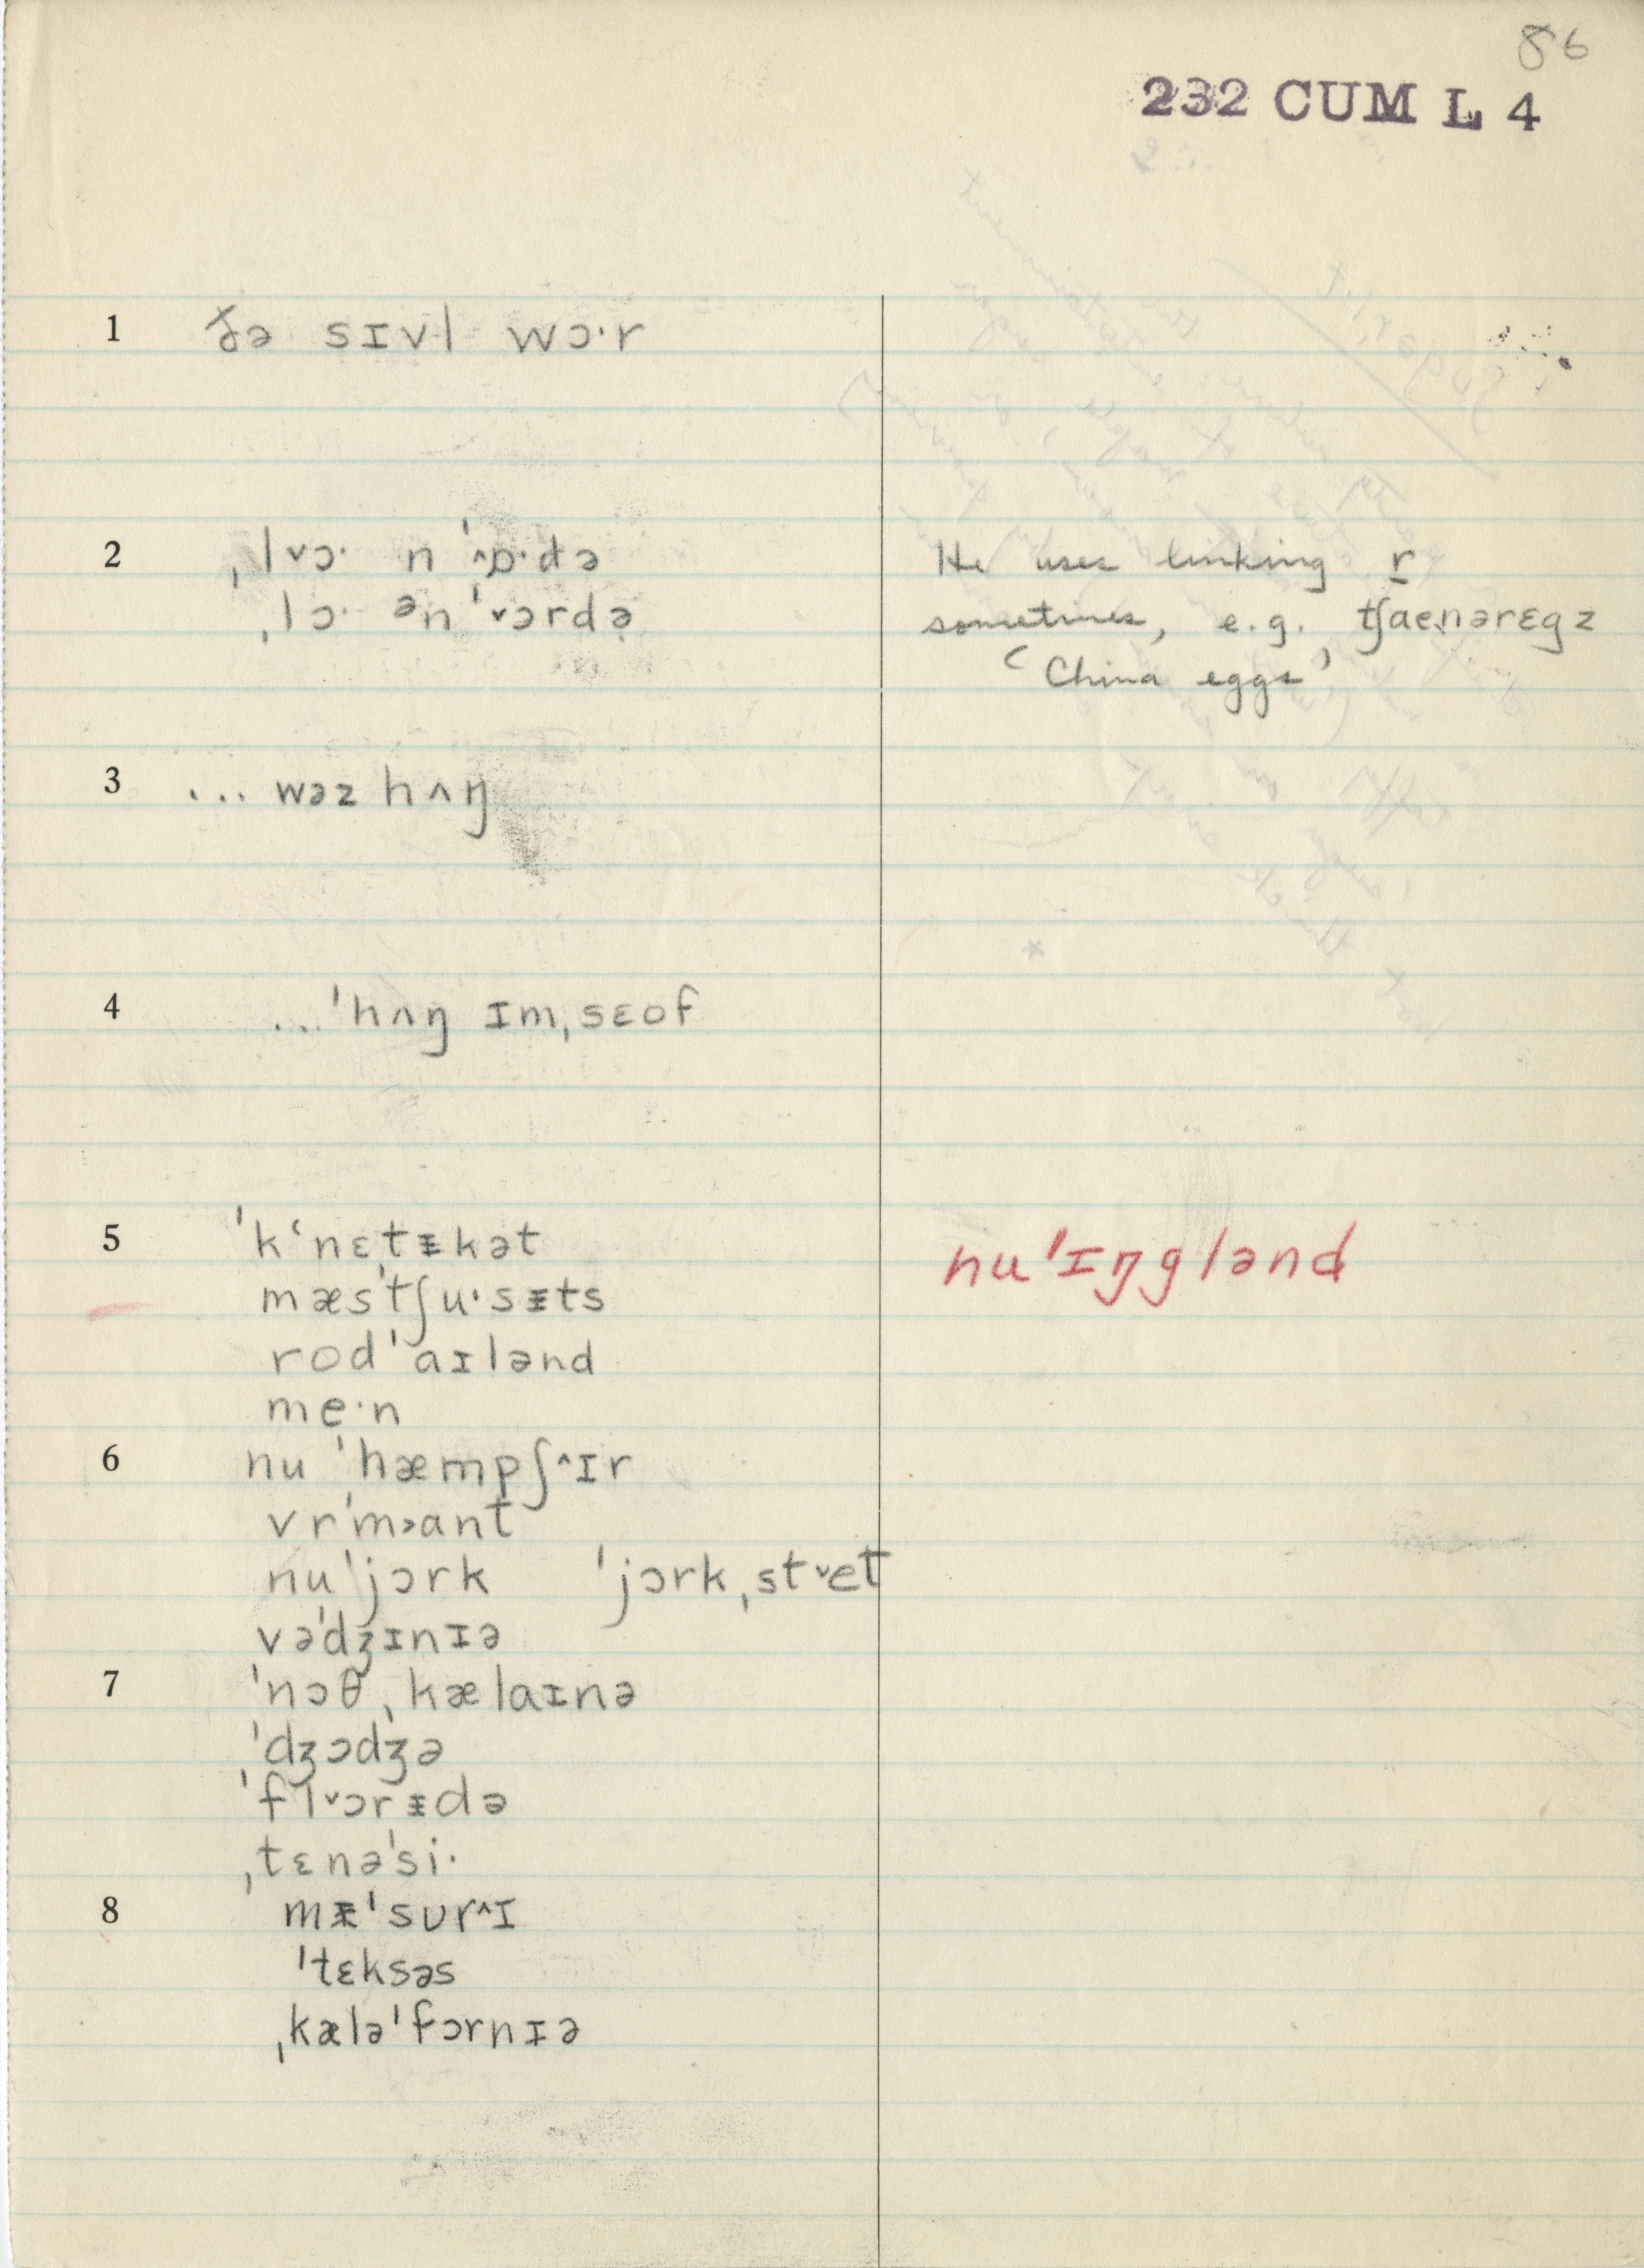 86
232 CUM L 4
1 ðə sɪvl wɔ·r
2 ˌl˅ɔ· n ˈ^ɒ·də
He uses linking r
ˌlɔ· ᵊn ˈ˅ɔrdə
sometimes, e.g. tʃaenərɛgz
‘China eggs’
3 ... wəz hʌŋ
4 ...ˈhʌŋ ɪmˌsɛof
5 ˈkʻnɛtᵻkət
nuˈɪŋglənd
mæsˈtʃu·sᵻts
rodˈaɪlənd
me·n
6 nu ˈhæmpʃ^ɪr
vrˈm˃ant
nuˈjɔrk ˈjɔrkˌst˅et
vəˈdʒɪnɪə
7 ˈnɔθˌkælaɪnə
ˈdʒɔdʒə
ˈfl˅ɔrᵻdə
ˌtɛnəˈsi·
8 mᵻˈsʊr^ɪ
ˈtɛksəs
ˌkæləˈfɔrnɪə